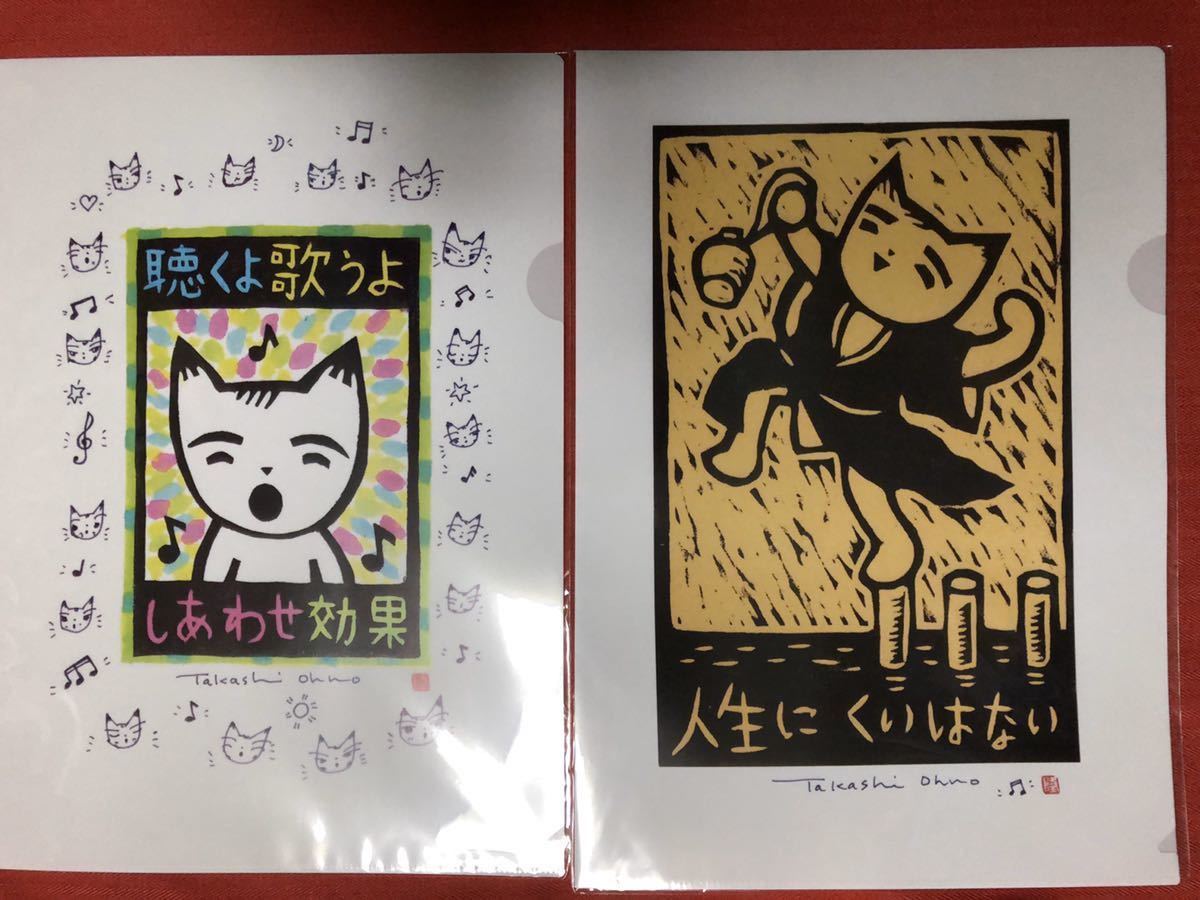 聴くよ歌うよ
しあわせ効果
Takashi Ohno
人生に くいはない
Takashi Ohno